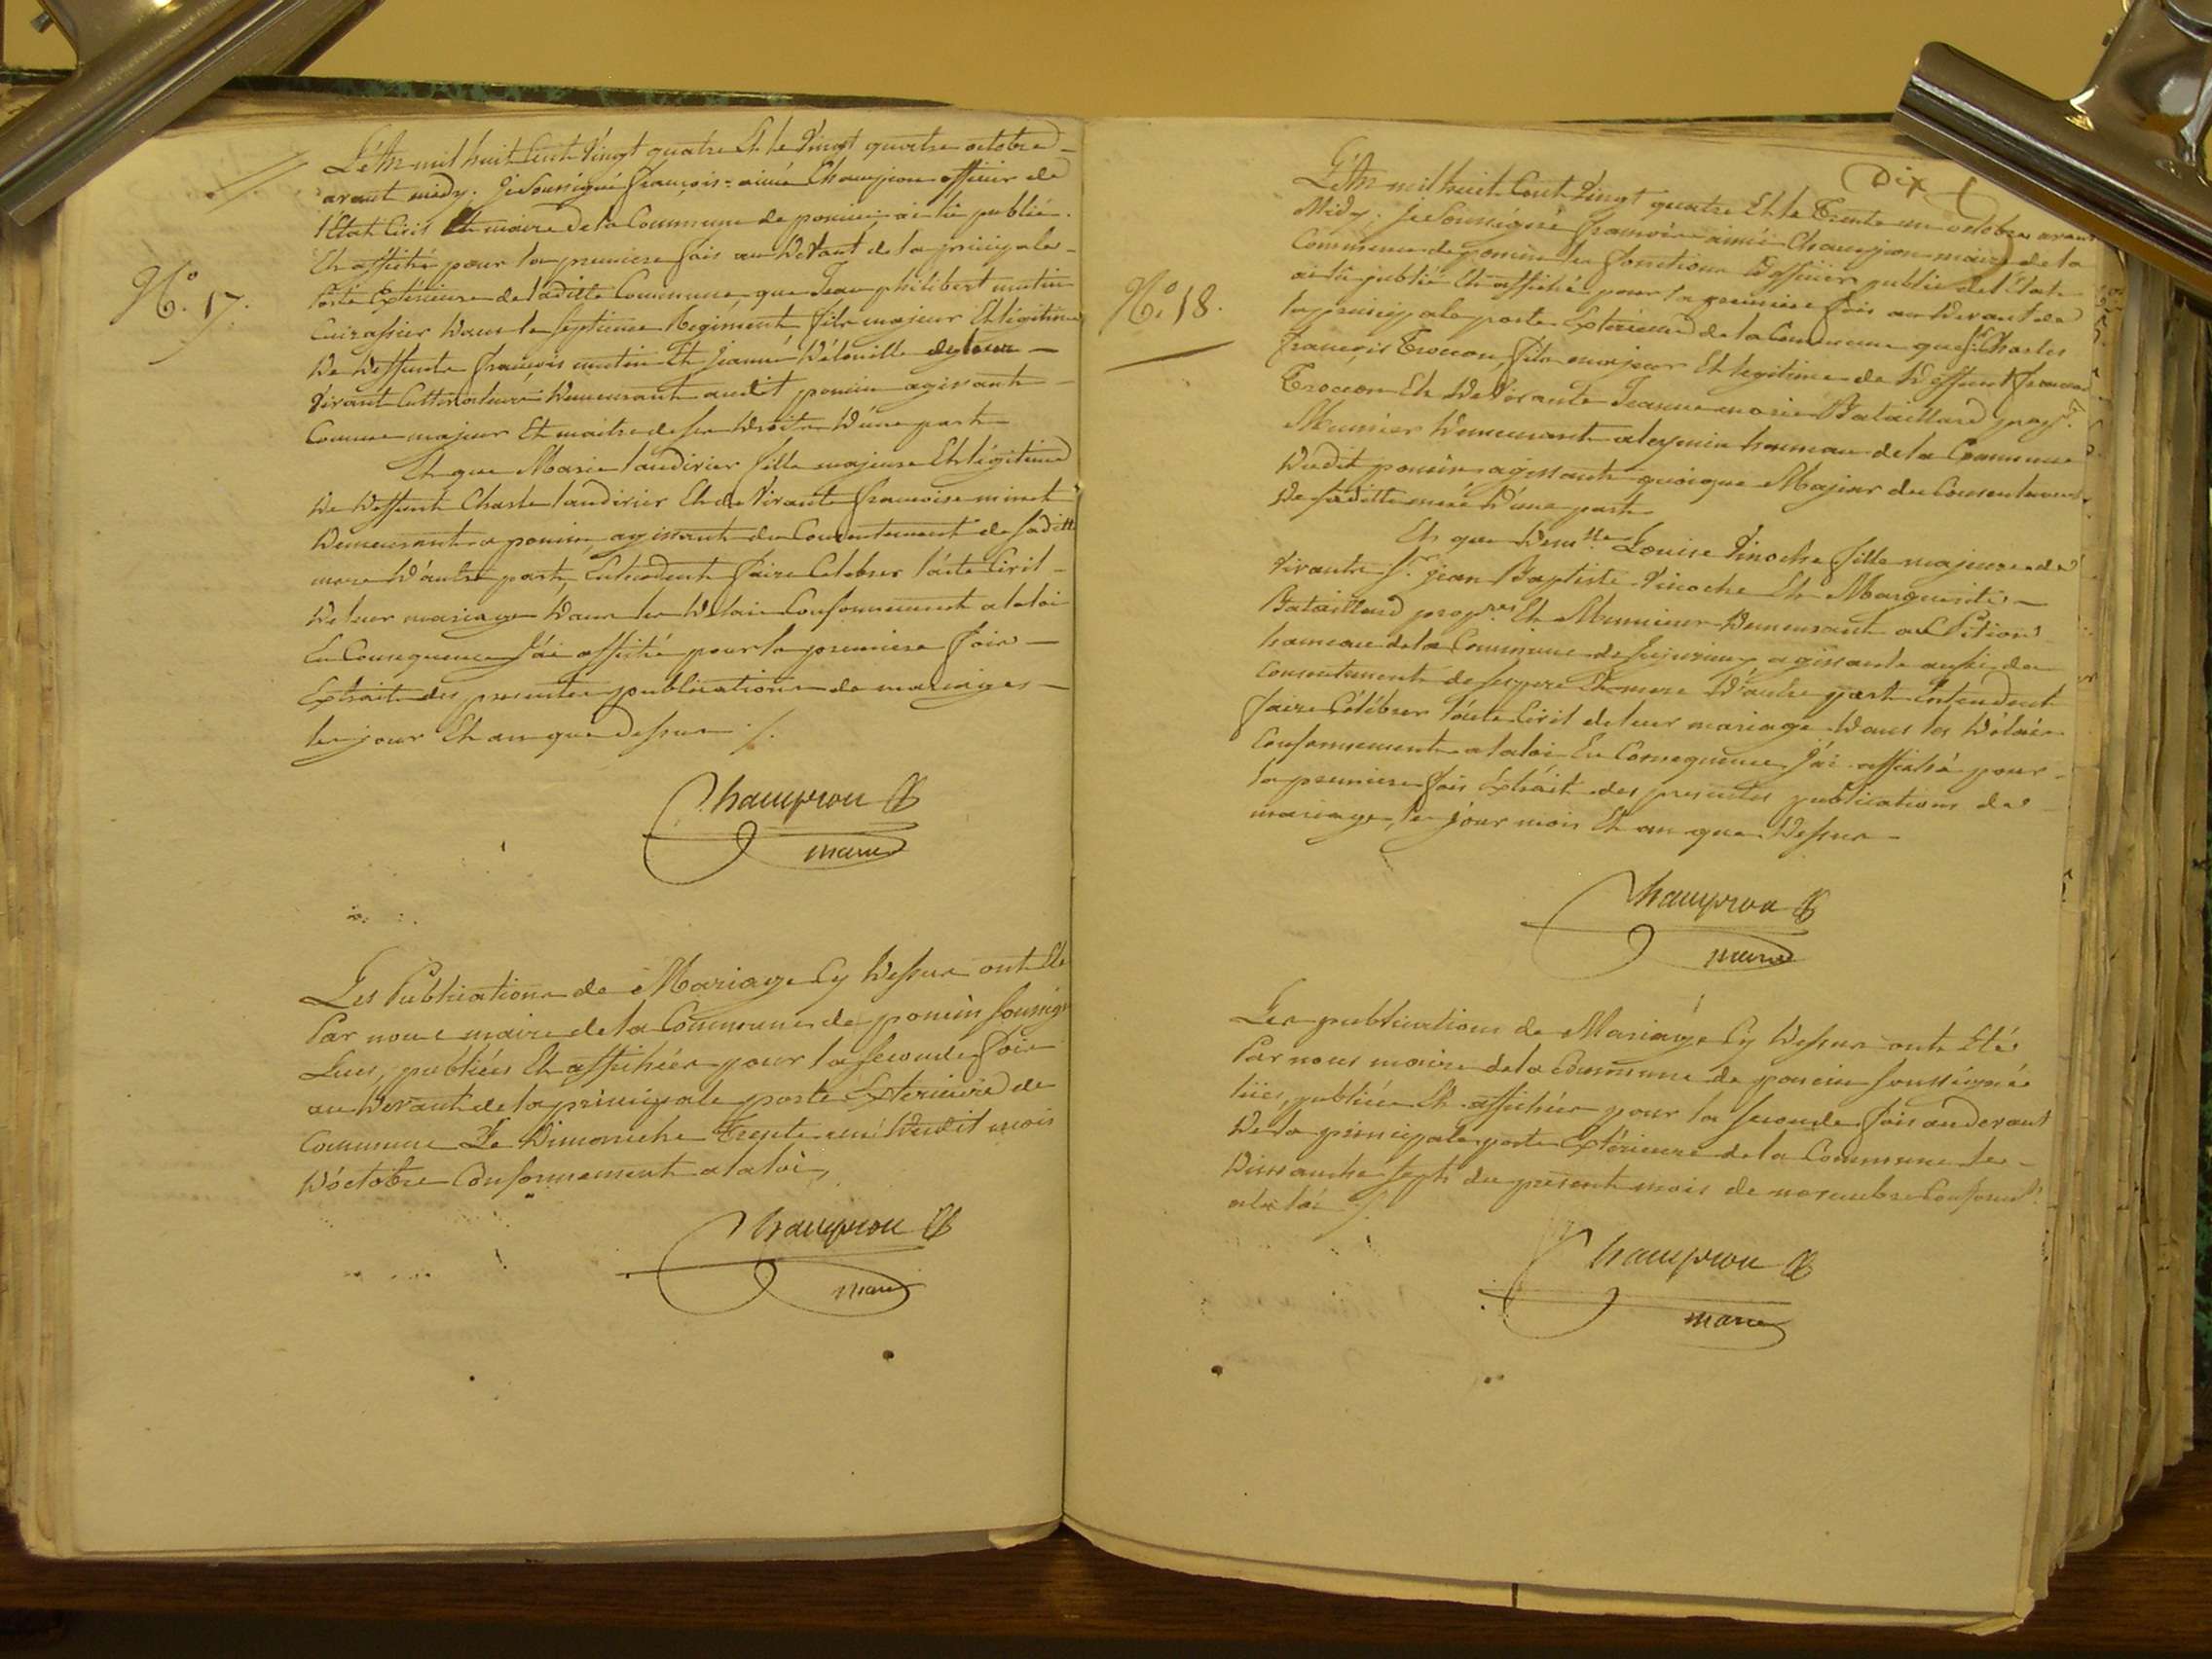 N.° 17.
L'an mil huit Cent vingt quatre Et le vingt quatre octobre
avant midy. Je Soussigné françois=aimé Champion officier de
l'Etat Civil Et maire de la Commune de poncin ai lu publié
Et affiché pour la premiere fois au devant de la principale
Porte Exterieure de ladite Commune que Jean philibert mutin
Cuirassier dans le Septieme Regiment fils majeur Et légitime
De Deffunts françois mutin Et jeanne
vivant Cultivateurs demeurant audit poncin agissant
Comme majeur Et maitre de ses droits D'une part
Et que Marie laudirier fille majeure Et légitime
De deffunt Charle laudirier Et de vivante francoise minet
Demeurante a poncin agissant du Consentement de sadite
mere D'autre part, Entendent faire Celebrer l'acte Civil
De leur mariage dans les délais Conformement a la loi
En Consequence J'ai affiché pour la premiere fois
Extrait des presentes publications de mariages
les jour Et an que dessus /.
Champion
maire
Les Publications de Mariage Cy dessus ont Eté
Par nous maire de la Commune de poncin soussigné
Lues, publiées Et affichées pour la seconde fois
au devant de la principale porte Exterieure de
Commune Le Dimanche Trente un dudit mois
D'octobre Conformement a la loi,
Champion
maire
Dix
N.° 18.
L'An mil huit Cent vingt quatre Et le Trente un octobre avant
Midy: Je Soussigné francois aimé Champion maire de la
Commune de poncin les fonctions D'officier public de l'Etat
ai lu publié Et affiché pour la premiere fois au devant de
la principale porte Exterieure de la Commune que S.r Charles
françois Troccon, fils majeur Et legitime de deffunt francois
Troccon Et de vivante Jeanne marie Bataillard prop.re
Meunier Demeurant a hameau de la Commune
Dudit poncin agissant quoique Majeur du Consentement
De sadite mere D'une part
Et que Dem.lle Louise Vinoche fille majeure de
vivants S.r jean Baptiste Vinoche Et Marguerite
Bataillard prop.res Et Meunier Demeurant au
hameau de la Commune de jujurieux agissante aussi du
Consentement de ses pere Et mere D'autre part Entendent
faire Célébrer l'acte Civil de leur mariage dans les délais
Conformement a la loi En Consequence J'ai affiché pour
la premiere fois Extrait des presentes publications de
mariage, les jour mois Et an que Dessus
Champion
maire
Les publications de Mariage Cy dessus ont Eté
Par nous maire de la Commune de poncin soussigné
lues, publiées Et affichées pour la seconde fois au devant
De la principale porte Extérieure de la Commune le
Dimanche sept du present mois de novembre Conformt.
a la loi /.
Champion
maire